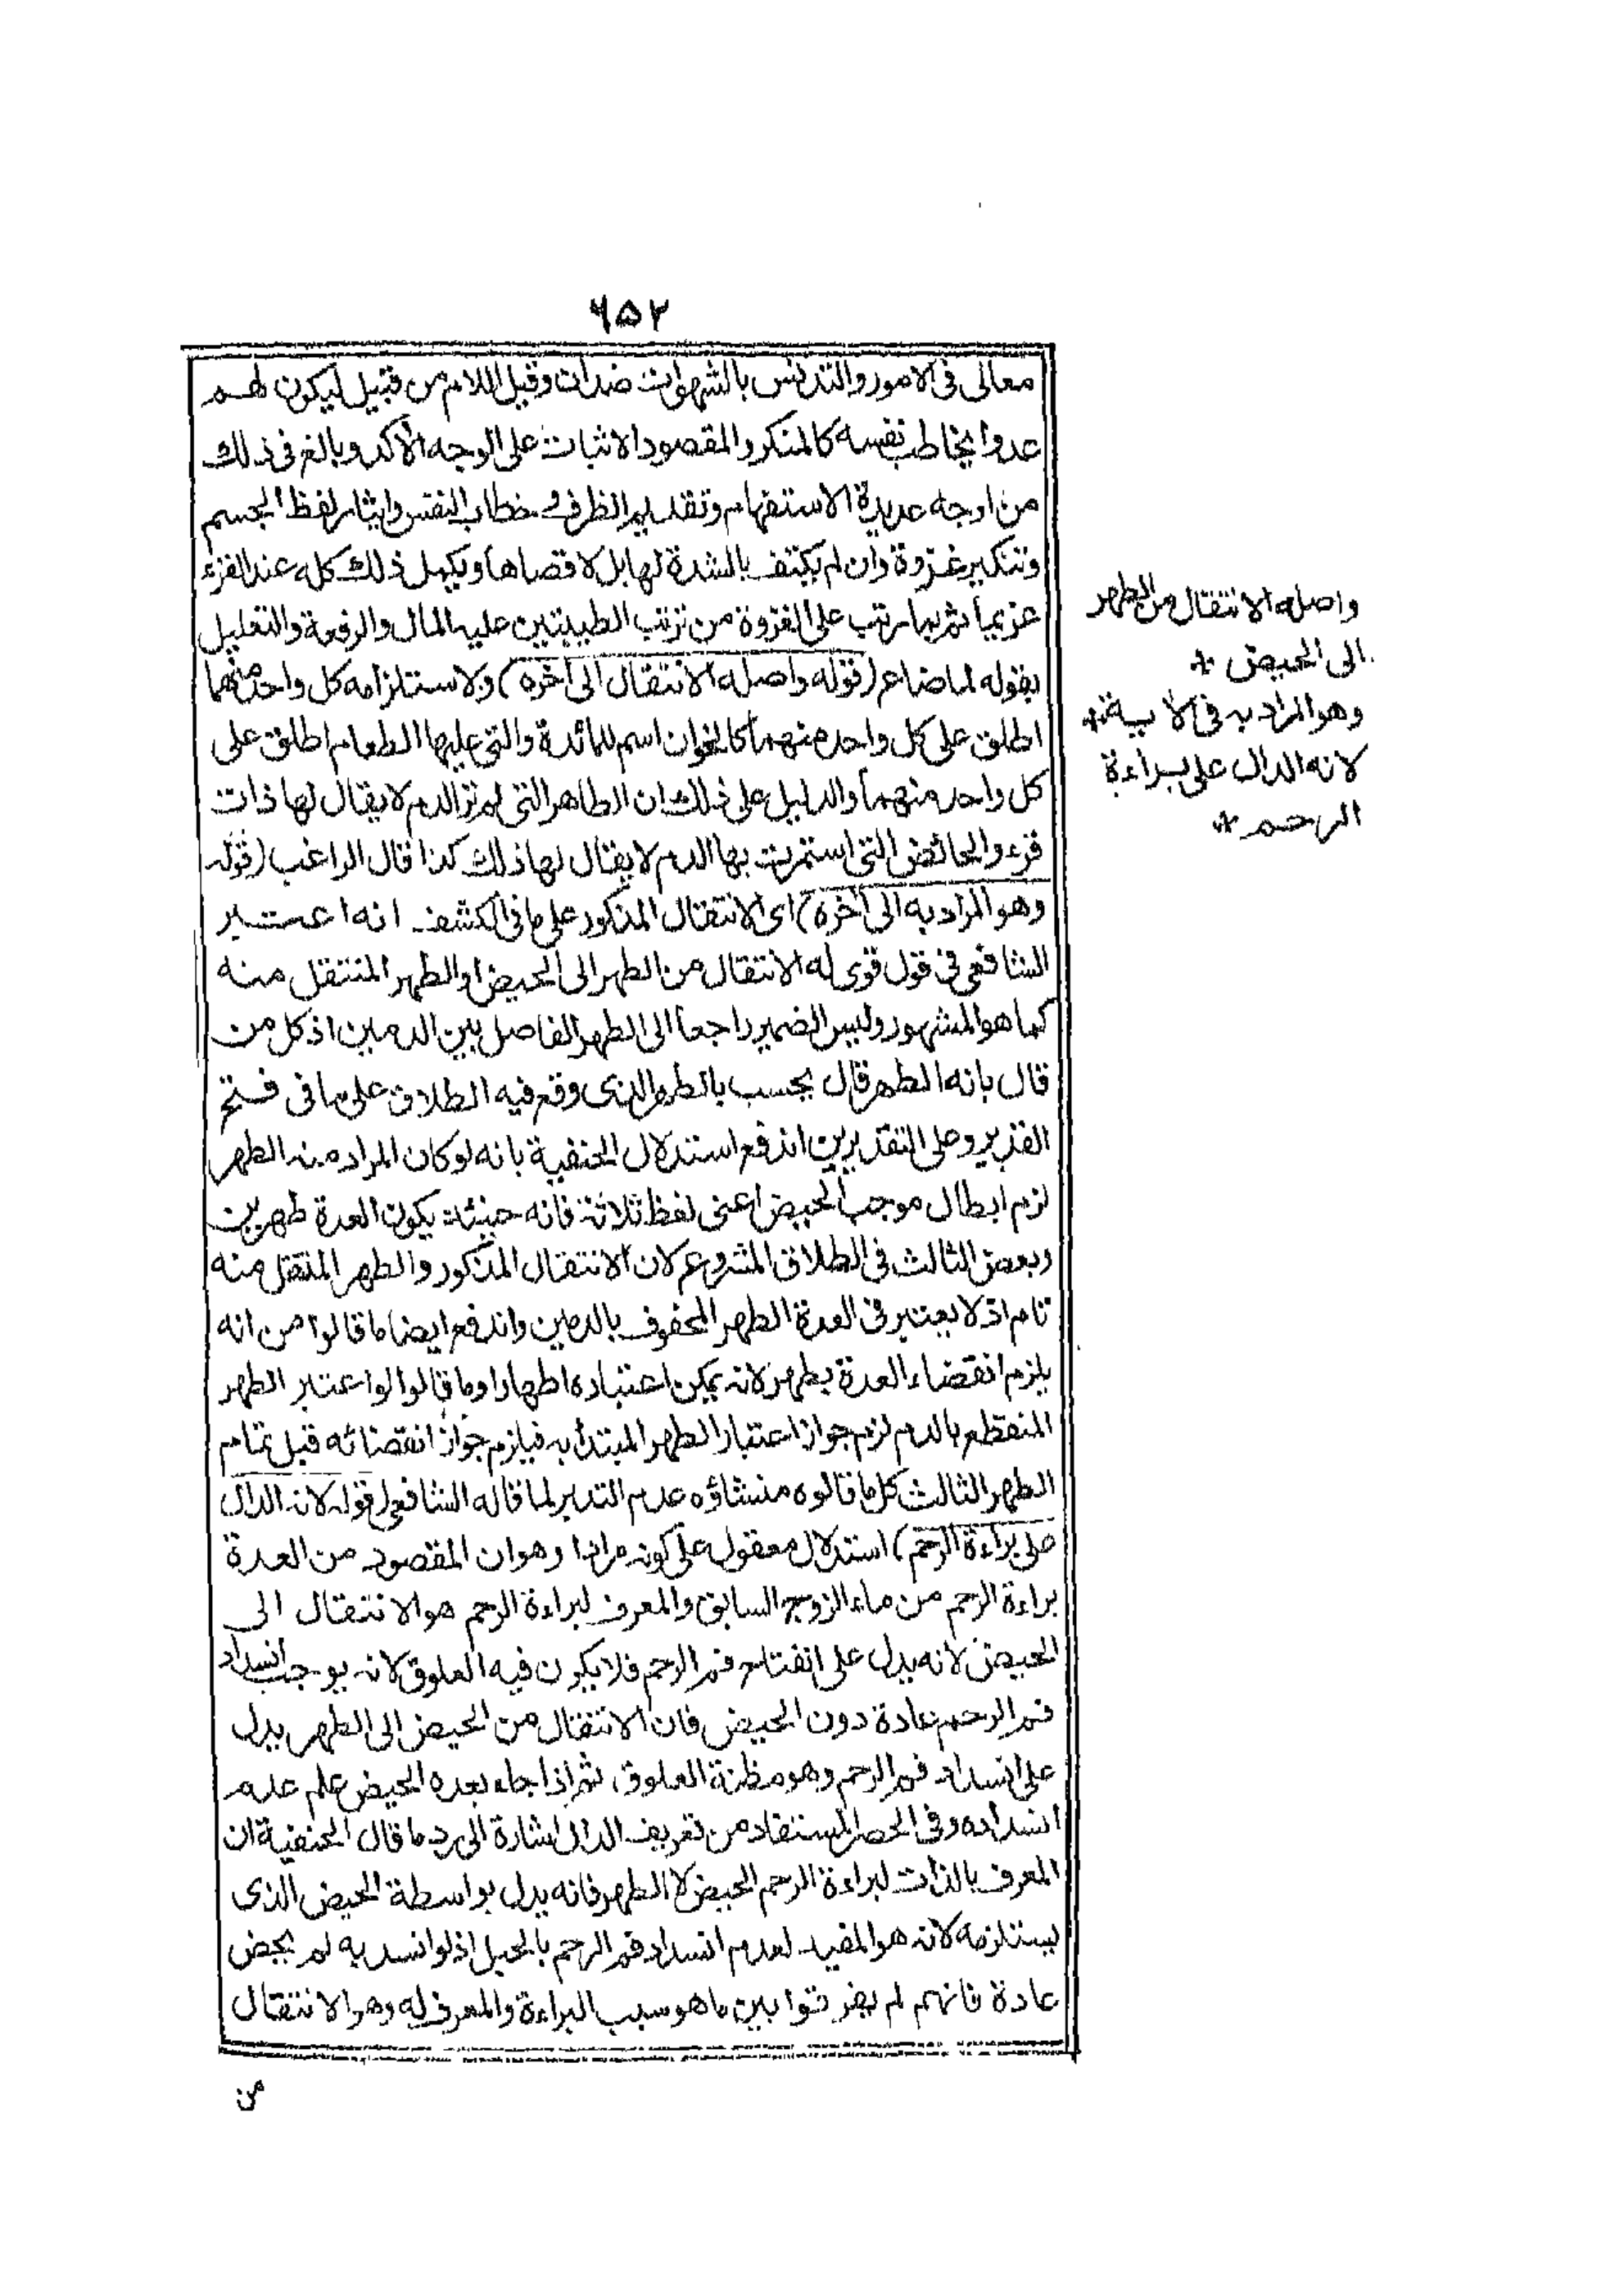 ٦٥٢
معالى فى الامور والتدنس بالشهوات ضدان وقيل اللام من قبيل ليكون لهم
عدوا يخاطب نفسه كالمنكر والمقصود الاثبات على الوجه الأكد وبالغ فى ذلك
من اوجه عديدة الاستفهام وتقديم الظرف فى خطاب النفس وايثار لفظ الجسم
وتنكير غزوة وان لم يكتف بالشدة لها بل لاقصاها ويكمل ذلك كله عند القرء
عزيما ثم بما رتب على الغزوة من ترتب الطيبتين عليه المال والرفعة والتعليل
بقوله لما ضاع (قوله واصله الانتقال الى آخره) ولاستلزامه كل واحد منهما
اطلق على كل واحد منهما كالخوان اسم للمائدة والتى عليها الطعام اطلق على
كل واحد منهما والدليل على ذلك ان الطاهر التى لم تر الدم لا يقال لها ذات
قرء والحائض التى استمرت بها الدم لا يقال لها ذلك كذا قال الراغب (قوله
وهو المراد به الى آخره) اى الانتقال المذكور على ما فى الكشف انه اعتبر
الشافعى فى قول قوى له الانتقال من الطهر الى الحيض او الطهر المنتقل منه
كما هو المشهور وليس الضمير راجعا الى الطهر الفاصل بين الدمين اذ كل من
قال بانه الطهر قال يحسب بالطهر الذى وقع فيه الطلاق على ما فى فتح
القدير وعلى التقديرين اندفع استدلال الحنفية بانه لو كان المراد منه الطهر
لزم ابطال موجب الحيض اعنى لفظ ثلاثة فانه حينئذ يكون العدة طهرين
وبعض الثالث فى الطلاق المشروع لان الانتقال المذكور والطهر المنتقل منه
تام اذ لا يعتبر فى العدة الطهر المحفوف بالدمين واندفع ايضا ما قالوا من انه
يلزم انقضاء العدة بطهر لانه يمكن اعتباده اطهارا وما قالوا لو اعتبر الطهر
المنقطع بالدم لزم جواز اعتبار الطهر المبتدأ به فيلزم جواز انقضائه قبل تمام
الطهر الثالث كل ما قالوه منشاؤه عدم التدبر لما قاله الشافعى (قوله لانه الدال
على براءة الرحم) استدلال معقول على كونه مرادا وهو ان المقصود من العدة
براءة الرحم من ماء الزوج السابق والمعرف لبراءة الرحم هو الانتقال الى
الحيض لانه يدل على انفتاح فم الرحم فلا يكون فيه العلوق لانه يوجب انسداد
فم الرحم عادة دون الحيض فان الانتقال من الحيض الى الطهر يدل
على انسداد فم الرحم وهو مظنة العلوق ثم اذا جاء بعده الحيض علم عدم
انسداده وفى الحصر المستفاد من تعريف الدال اشارة الى رد ما قال الحنفية ان
المعرف بالذات لبراءة الرحم الحيض لا الطهر فانه يدل بواسطة الحيض الذى
يستلزمه لانه هو المفيد لعدم انسداد فم الرحم بالحبل اذ لو انسد به لم يحض
عادة فانهم لم يفرقوا بين ما هو سبب البراءة والمعرف له وهو الانتقال
من
واصله الانتقال من الطهر
الى الحيض *
وهو المراد به فى الاية *
لانه الدال على براءة
الرحم *